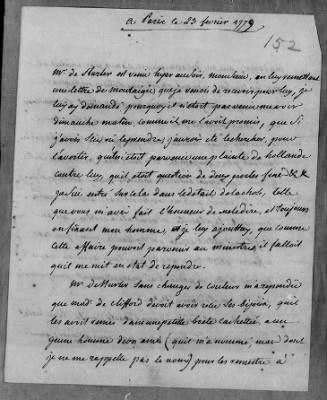 a Paris le 23 fevrier 1779
152
Mr de Harler est venu hyer au soir, monsieur, en luy remettant
une lettre de montaigü, que je venois de recevoir pour luy, je
luy ay demandé pourquoy il n'étoit pas venu me voir
dimanche matin comme il me l'avoit promis, que si
j'avois sçu où le prendre, j'aurois été le chercher, pour
l'avertir, qu'il étoit parvenu une plainte de hollande
contre luy, qu'il étoit question de
j'ay suis entré sur cela dans le détail de la chose, telle
que vous m'avés fait l'honneur de me le dire, et toujours
en fixant mon homme, et je luy ajouttay, que comme
cette affaire pouvoit parvenir au ministre, il falloit
qu'il me mit en état de repondre.
Mr de Harler sans changer de couleur m'a repondu
que mad. de Clifford devoit avoir reçu ses bijoux, qu'il
les avoit remis dans une petite boete cachettée, a un
jeune homme de ses amis (qu'il m'a nommé, mais dont
je ne me rappelle pas le nom) pour les remettre a